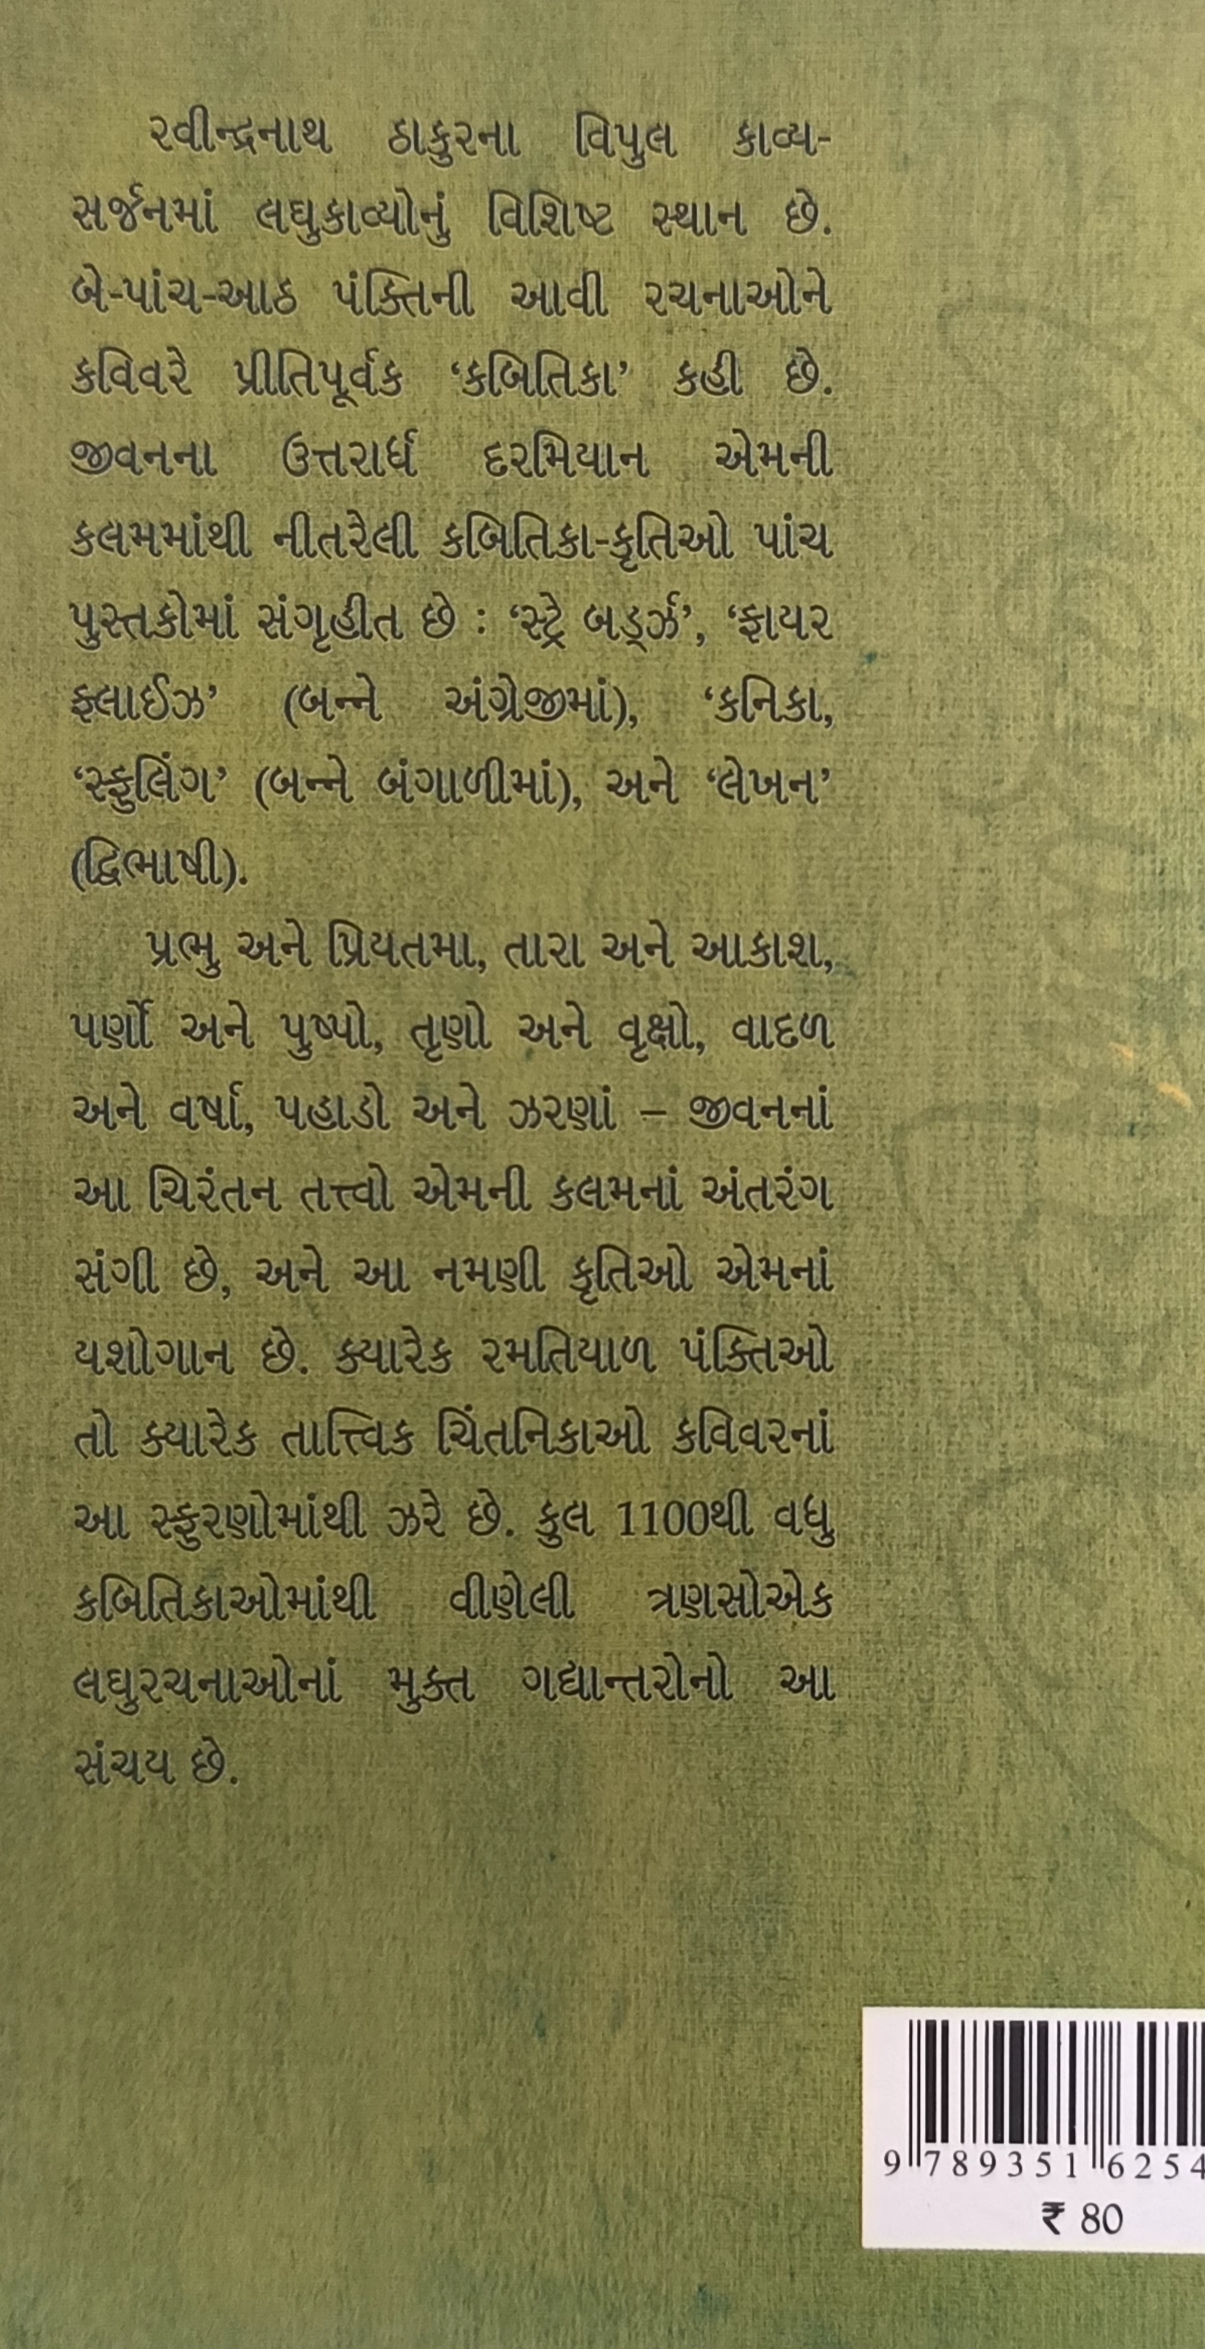 રવીન્દ્રનાથ ઠાકુરના વિપુલ કાવ્ય-
સર્જનમાં લઘુકાવ્યોનું વિશિષ્ટ સ્થાન છે.
બે-પાંચ-આઠ પંક્તિની આવી રચનાઓને
કવિવરે પ્રીતિપૂર્વક ‘કબિતિકા’ કહી છે.
જીવનના ઉત્તરાર્ધ દરમિયાન એમની
કલમમાંથી નીતરેલી કબિતિકા-કૃતિઓ પાંચ
પુસ્તકોમાં સંગૃહીત છે : ‘સ્ટ્રે બર્ડ્ઝ’, ‘ફાયર
ફ્લાઈઝ’ (બન્ને અંગ્રેજીમાં), ‘કનિકા,
‘સ્ફુલિંગ’ (બન્ને બંગાળીમાં), અને ‘લેખન’
(દ્વિભાષી).
પ્રભુ અને પ્રિયતમા, તારા અને આકાશ,
પર્ણો અને પુષ્પો, તૃણો અને વૃક્ષો, વાદળ
અને વર્ષા, પહાડો અને ઝરણાં – જીવનનાં
આ ચિરંતન તત્ત્વો એમની કલમનાં અંતરંગ
સંગી છે, અને આ નમણી કૃતિઓ એમનાં
યશોગાન છે. ક્યારેક રમતિયાળ પંક્તિઓ
તો ક્યારેક તાત્ત્વિક ચિંતનિકાઓ કવિવરનાં
આ સ્ફુરણોમાંથી ઝરે છે. કુલ 1100થી વધુ
કબિતિકાઓમાંથી વીણેલી ત્રણસોએક
લઘુરચનાઓનાં મુક્ત ગદ્યાન્તરોનો આ
સંચય છે.
9 789351 6254
₹ 80